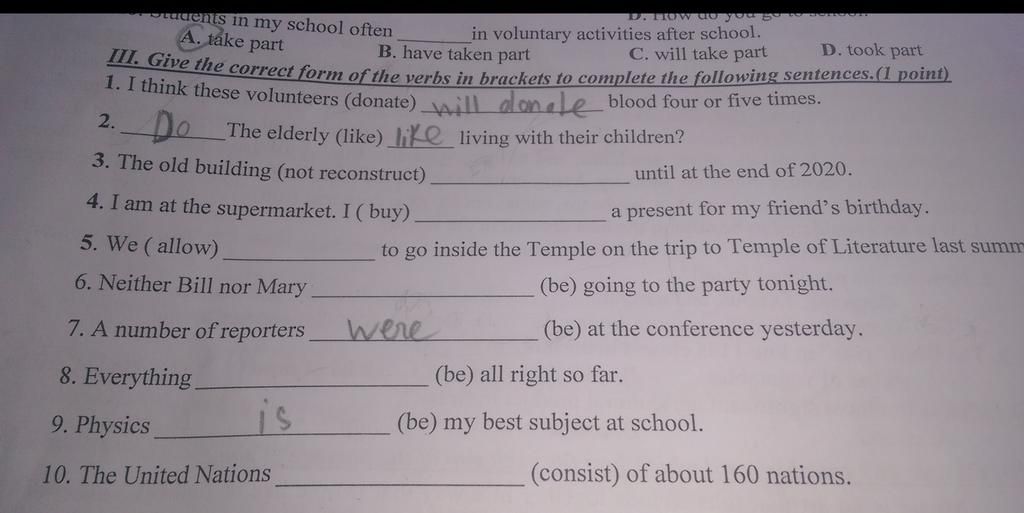 Students in my school often ______ in voluntary activities after school.
D. How do you go to school.
A. take part B. have taken part C. will take part D. took part
III. Give the correct form of the verbs in brackets to complete the following sentences.(1 point)
1. I think these volunteers (donate) will donate blood four or five times.
2. Do The elderly (like) like living with their children?
3. The old building (not reconstruct) ______ until at the end of 2020.
4. I am at the supermarket. I ( buy) ______ a present for my friend's birthday.
5. We ( allow) ______ to go inside the Temple on the trip to Temple of Literature last summ
6. Neither Bill nor Mary ______ (be) going to the party tonight.
7. A number of reporters were (be) at the conference yesterday.
8. Everything ______ (be) all right so far.
9. Physics is (be) my best subject at school.
10. The United Nations ______ (consist) of about 160 nations.